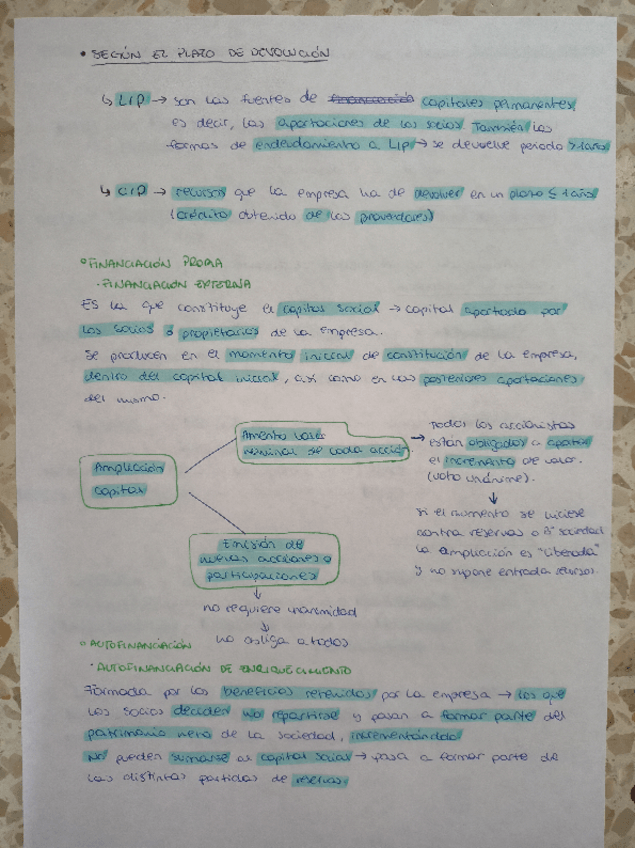 • SEGÚN EL PLAZO DE DEVOLUCIÓN
↳ L/P → son las fuentes de financiación capitales permanentes,
es decir, las aportaciones de los socios. También las
formas de endeudamiento a L/P → se devuelve periodo > 1 año
↳ C/P → recursos que la empresa ha de devolver en un plazo ≤ 1 año
(crédito obtenido de los proveedores)
° FINANCIACIÓN PROPIA
· FINANCIACIÓN EXTERNA
Es la que constituye el capital social → capital aportado por
los socios o propietarios de la empresa.
Se producen en el momento inicial de constitución de la empresa,
dentro del capital inicial, así como en las posteriores aportaciones
del mismo.
Ampliación
capital
Amento valor
nominal de cada acción
→ Todos los accionistas
están obligados a aportar
el incremento de valor.
(voto unánime).
↓
Si el aumento se hiciese
contra reservas o Bº sociedad
la ampliación es "liberada"
y no supone entrada recursos.
Emisión de
nuevas acciones o
participaciones
↓
no requiere unanimidad
↓
no obliga a todos
° AUTOFINANCIACIÓN
· AUTOFINANCIACIÓN DE ENRIQUECIMIENTO
Formada por los beneficios retenidos por la empresa → los que
los socios deciden no repartirse y pasan a formar parte del
patrimonio neto de la sociedad, incrementándolo
No pueden sumarse al capital social → pasa a formar parte de
las distintas partidas de reservas.